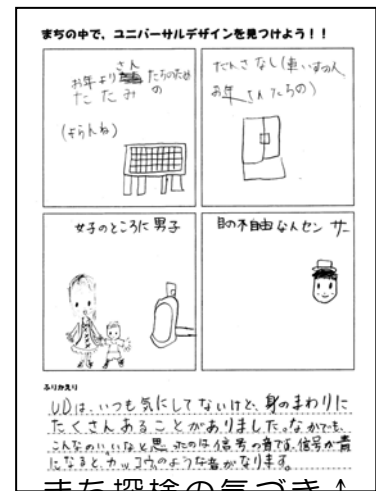 まちの中で、ユニバーサルデザインを見つけよう！！
さん
お年より たちのため
たたみ の
だんさなし(車いすの人
お年 さんたちの)
女子のところに男子
目の不自由なんセンサー
ふりかえり
UDは、いつも気にしてないけど、身のまわりに
たくさんあることがありました。なかでも、
こんなのいいなと思ったのは信号の音です。信号が青
になると、カッコウのような音がなります。
まち探検の気づき↑